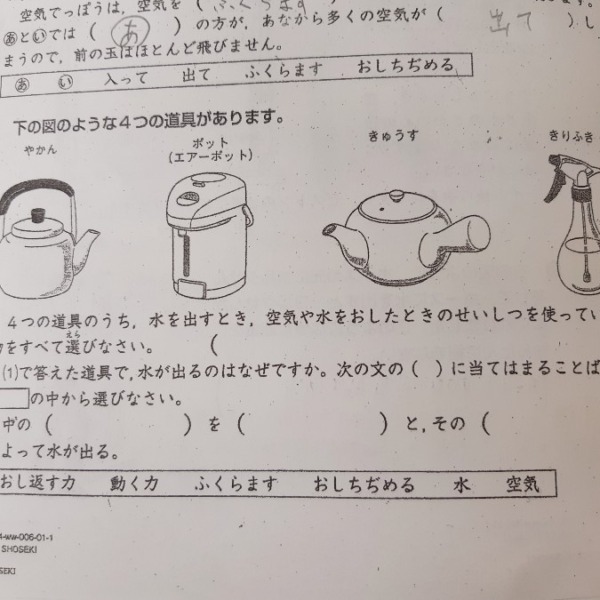 空気でっぽうは，空気を（ ふくらます
あといでは（ あ ）の方が，あなから多くの空気が（ 出て ）し
まうので，前の玉はほとんど飛びません。
あ い 入って 出て ふくらます おしちぢめる
下の図のような４つの道具があります。
やかん ポット（エアーポット） きゅうす きりふき
４つの道具のうち，水を出すとき，空気や水をおしたときのせいしつを使ってい
をすべて選びなさい。（
えら
(1)で答えた道具で，水が出るのはなぜですか。次の文の（ ）に当てはまることば
の中から選びなさい。
中の（ ）を（ ）と，その（
よって水が出る。
おし返す力 動く力 ふくらます おしちぢめる 水 空気
-ww-006-01-1
SHOSEKI
SEKI